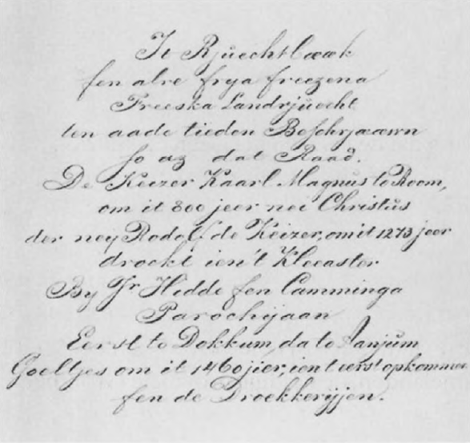 It Rjuechtbæk
fen alre frya freezena
Freeska Landrjuecht
ten aade tieden Beschrjaawn
so az dat Raad.
De Keizer Kaarl Magnus to Room,
om it 800 jeer nei Christus
der ney Rodolf de Keizer, om it 1273 jeer
drockt ien't Kleeaster
By Jr Hidde fen Camminga
Parochijaan
Eerst to Dokkum da to Aanjum
Goeltjes om it 1460 jier, ient eerst opkommen
fen de Droekkerijjen.